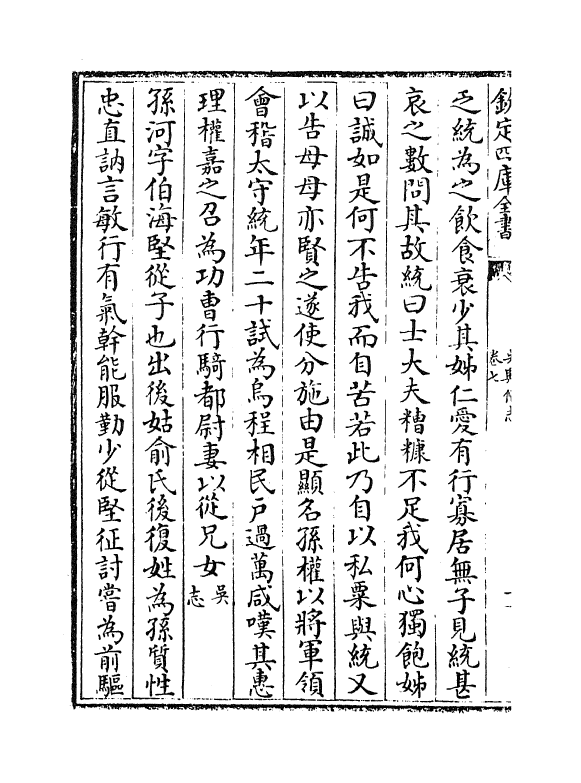 欽定四庫全書
卷七
乏統為之飲食衰少其姊仁愛有行寡居無子見統甚
哀之數問其故統曰士大夫糟糠不足我何心獨飽姊
曰誠如是何不告我而自苦若此乃自以私粟與統又
以告母母亦賢之遂使分施由是顯名孫權以將軍領
會稽太守統年二十試為烏程相民戶過萬咸嘆其惠
理權嘉之召為功曹行騎都尉妻以從兄女吳志
孫河字伯海堅從子也出後姑俞氏後復姓為孫質性
忠直訥言敏行有氣幹能服勤少從堅征討嘗為前驅